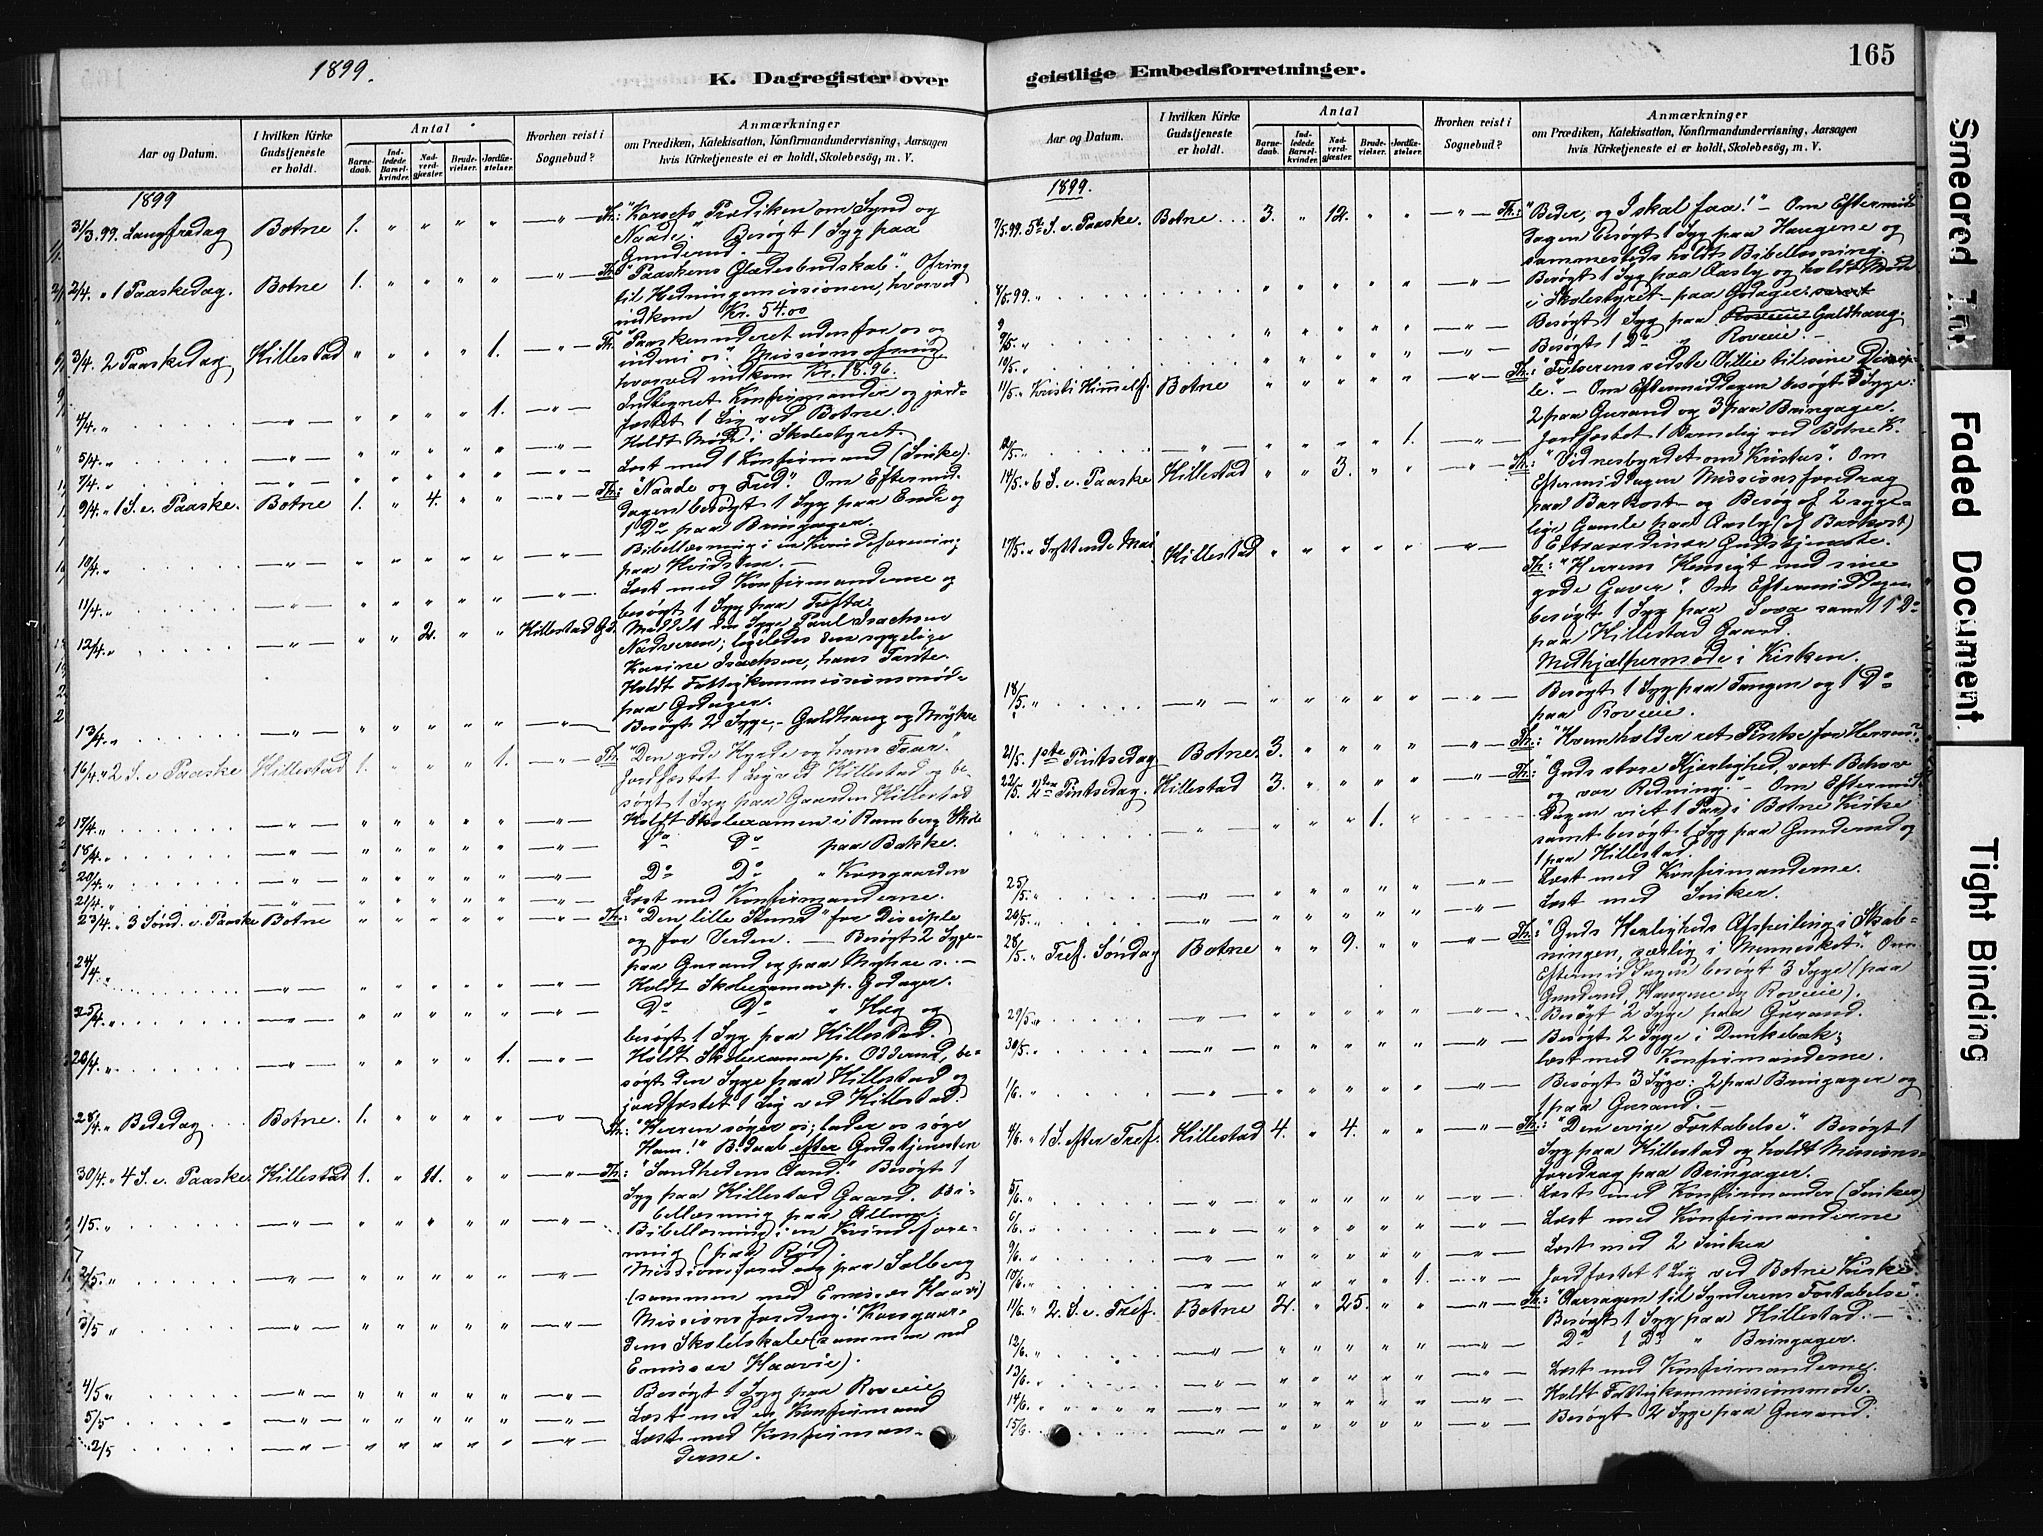 1899.
K. Dagregister over
Aar og Datum.
I hvilken Kirke Gudstjeneste er holdt.
Antal
Barne-daab.
Ind-ledede Barsel-kvinder.
Nad-verd-gjæster.
Brude-vielser.
Jordfæ-stelser.
Hvorhen reist i Sognebud?
Anmærkninger
om Prædiken, Katekisation, Konfirmandundervisning, Aarsagen
hvis Kirketjeneste ei er holdt, Skolebesøg, m. V.
1899
31/3. 99. Langfredag Botne 1. " " " " —"— Th: "Korsets Prædiken om Synd og
Naade." Besøgt 1 Syg paa
Gunderud. —
2/4. " 1 Paaskedag. Botne 1. " " " " —"— Th: "Paaskens Glædesbudskab". Ofring
til Hedningemissionen, hvorved
indkom Kr. 54.00
3/4. 2 Paaskedag Hillestad " " " " 1. —"— Th: "Paaskeunderet udenfor os og
indeni os". Missionsofring,
hvorved indkom Kr. 18.96.
4/4. " —"— " " " " 1. —"— Indtegnet Konfirmander og jord-
fæstet 1 Lig ved Botne.
5/4. " —"— " " " " " —"— Holdt Møde i Skolestyret.
7/4. " —"— " " " " " —"— Læst med 1 Konfirmand (Sinke).
9/4. " 1 S. e. Paaske. Botne 1. " 4. " " —"— Th: "Naade og Fred". Om Eftermid-
dagen besøgt 1 Syg paa Enda og
1 Do paa Bringager.
10/4. " —"— " " " " " —"— Bibellæsning i en Kvindeforening
paa Kvidsten. —
11/4. " —"— " " " " " —"— Læst med Konfirmanderne og
besøgt 1 Syg paa Tufta
12/4. " —"— " " 2. " " Hillestad Gd. Meddelt den syge Paul Isachsen
Nadveren; ligeledes den sygelige
Karine Isachsen, hans Tante.
Holdt Fattigkommissionsmøde
paa Godager.
13/4. " —"— " " " " " —"— Besøgt 2 Syge, - Guldhaug og Mykre
16/4. " 2 S. e. Paaske Hillestad 1. " " " 1. —"— Th "Den gode Hyrde og hans Faar."
Jordfæstet 1 Lig ved Hillestad og be-
søgt 1 Syg paa Gaarden Hillestad
17/4. " —"— " " " " " —"— Holdt Skoleexamen i Ramberg Skole
18/4. " —"— " " " " " —"— Do Do paa Bakke.
20/4. " —"— " " " " " —"— Do Do " Kongaarden
21/4. " —"— " " " " " —"— Læst med Konfirmanderne.
23/4. " 3 Sønd. e. Paaske Botne " " " " " —"— Th: "Den lille Stund" for Disciple
og for Verden. — Besøgt 2 Syge-
paa Gurand og paa Myhre s. —
24/4. " —"— " " " " " —"— Holdt Skoleexamen p. Godager.
25/4. " —"— " " " " " —"— Do Do " Høg og
besøgt 1 Syg paa Hillestad.
26/4. " —"— " " " " 1. —"— Holdt Skoleexamen p. Odderud, be-
søgt den Syge paa Hillestad og
jordfæstet 1 Lig ved Hillestad.
28/4. " Bededag Botne. 1. " " " " " Th: "Herren søger os; lader os søge
Ham!" B.daab efter Gudstjenesten
30/4. " 4 S. e. Paaske. Hillestad 1. " 11. " " —"— Th: "Sandhedens Aand." Besøgt 1
Syg paa Hillestad Gaard. Bi-
bellæsning paa Allum.
1/5. " —"— " " " " " —"— Bibellæsning i en Kvindefore-
ning (paa Rød).
2/5. " —"— " " " " " —"— Missionsforedrag paa Solberg
(sammen med Emissær Haavi)
3/5 " —"— " " " " " —"— Missionsforedrag i Kongaar-
dens Skolelokale (sammen med
Emissær Haavie).
4/5 " —"— " " " " " —"— Besøgt 1 Syg paa Roveie
5/5 —"— " " " " " —"— Læst med en Konfirmand
2/5 —"— " " " " " —"— Læst med Konfirman-
derne.
165
geistlige Embedsforretninger.
Aar og Datum.
I hvilken Kirke Gudstjeneste er holdt.
Antal
Barne-daab.
Ind-ledede Barsel-kvinder.
Nad-verd-gjæster.
Brude-vielser.
Jordfæ-stelser.
Hvorhen reist i Sognebud?
Anmærkninger
om Prædiken, Katekisation, Konfirmandundervisning, Aarsagen
hvis Kirketjeneste ei er holdt, Skolebesøg, m. V.
1899.
7/5. 99. 5te S. e. Paaske. Botne 3. " 12. " " —"— Th: "Beder, og I skal faa!" - Om Eftermid-
dagen besøgt 1 Syg paa Haugene og
sammesteds holdt Bibellæsning.
8/5. 99. " " " " " " —"— Besøgt 1 Syg paa Aasly og holdt Møde
i Skolestyret paa Godager. samt
9/5. " " " " " " —"— Besøgt 1 Syg paa Roveie Guldhaug.
10/5. " " " " " " —"— Besøgt 1 Do " Roveie. —
11/5. " Kristi Himmelf. Botne " " " " " —"— Th: "Frelserens sidste Villie til sine Discip-
le." - Om Eftermiddagen besøgt 5 Syge:
2 paa Gurand og 3 paa Bringager.
12/5. " —"— " " " " 1. —"— Jordfæstet 1 Barnelig ved Botne K.
14/5. " 6 S. e. Paaske Hillestad " " 3. " " —"— Th: "Vidnesbyrdet om Kristus". Om
Eftermiddagen Missionsforedrag
paa Barkost og Besøg af 2 syge-
lige Gamle paa Aasly (af Barkost)
17/5. " Syttende Mai Hillestad " " " " " —"— Extraordinær Gudstjeneste.
Th: "Herrens Hensigt med sine
gode Gaver". Om Eftermiddagen
besøgt 1 Syg paa Sova samt 1 Do
paa Hillestad Gaard.
Medhjælpermøde i Kirken.
18/5. " —"— " " " " " —"— Besøgt 1 Syg paa Tangen og 1 Do
paa Roveie.
21/5. " 1ste Pintsedag Botne. 3. " " " " —"— Th: "Hvem holder ret Pintse for Herren?"
22/5. " 2den Pintsedag. Hillestad 3. " " " " —"— Th: "Guds store Kjærlighed, vort Behov
og vor Redning." - Om Eftermid-
" " —"— " " " 1. " Dagen viet 1 Par i Botne Kirke
samt besøgt 1 Syg paa Gunderud og
1 paa Hillestad.
25/5. " —"— " " " " " —"— Læst med Konfirmanderne.
26/5. " —"— " " " " " —"— Læst med Sinker.
28/5. " Tref. Søndag Botne " " 9. " " —"— Th: "Guds Herligheds Afspeiling i Skab-
ningen, særlig i Mennesket." Om
Eftermiddagen besøgt 3 Syge (paa
Gunderud, Haugene og Roveie).
29/5. " —"— " " " " " —"— Besøgt 2 Syge paa Gurand.
30/5. " —"— " " " " " —"— Besøgt 2 Syge i Dunkebæk;
læst med Konfirmanderne.
1/6. " —"— " " " " " —"— Besøgt 3 Syge: 2 paa Bringager og
1 paa Gurand. —
4/6. " 1 S. efter Tref. Hillestad 4. " 4. " " —"— Th: "Den evige Fortabelse." Besøgt 1
Syg paa Hillestad og holdt Missions-
foredrag paa Bringager.
5/6. " —"— " " " " " —"— Læst med Konfirmander (Sinker)
6/6. " —"— " " " " " —"— Læst med Konfirmanderne
9/6. " —"— " " " " " —"— Læst med 2 Sinker
10/6. " —"— " " " " 1. —"— Jordfæstet 1 Lig ved Botne Kirke
11/6. " 2. S. e. Tref. Botne 2. " 25. " " —"— Th: "Aarsagen til Synderens Fortabelse".
Besøgt 1 Syg paa Hillestad. —
12/6. " —"— " " " " " —"— Do 1 Do " Bringager.
13/6. " —"— " " " " " —"— Læst med Konfirmanderne.
14/6. " —"— " " " " " —"— Holdt Fattigkommissionsmøde.
15/6. —"— " " " " " —"— Besøgt 2 Syge paa Gurand.
Smeared Ink
Faded Document
Tight Binding